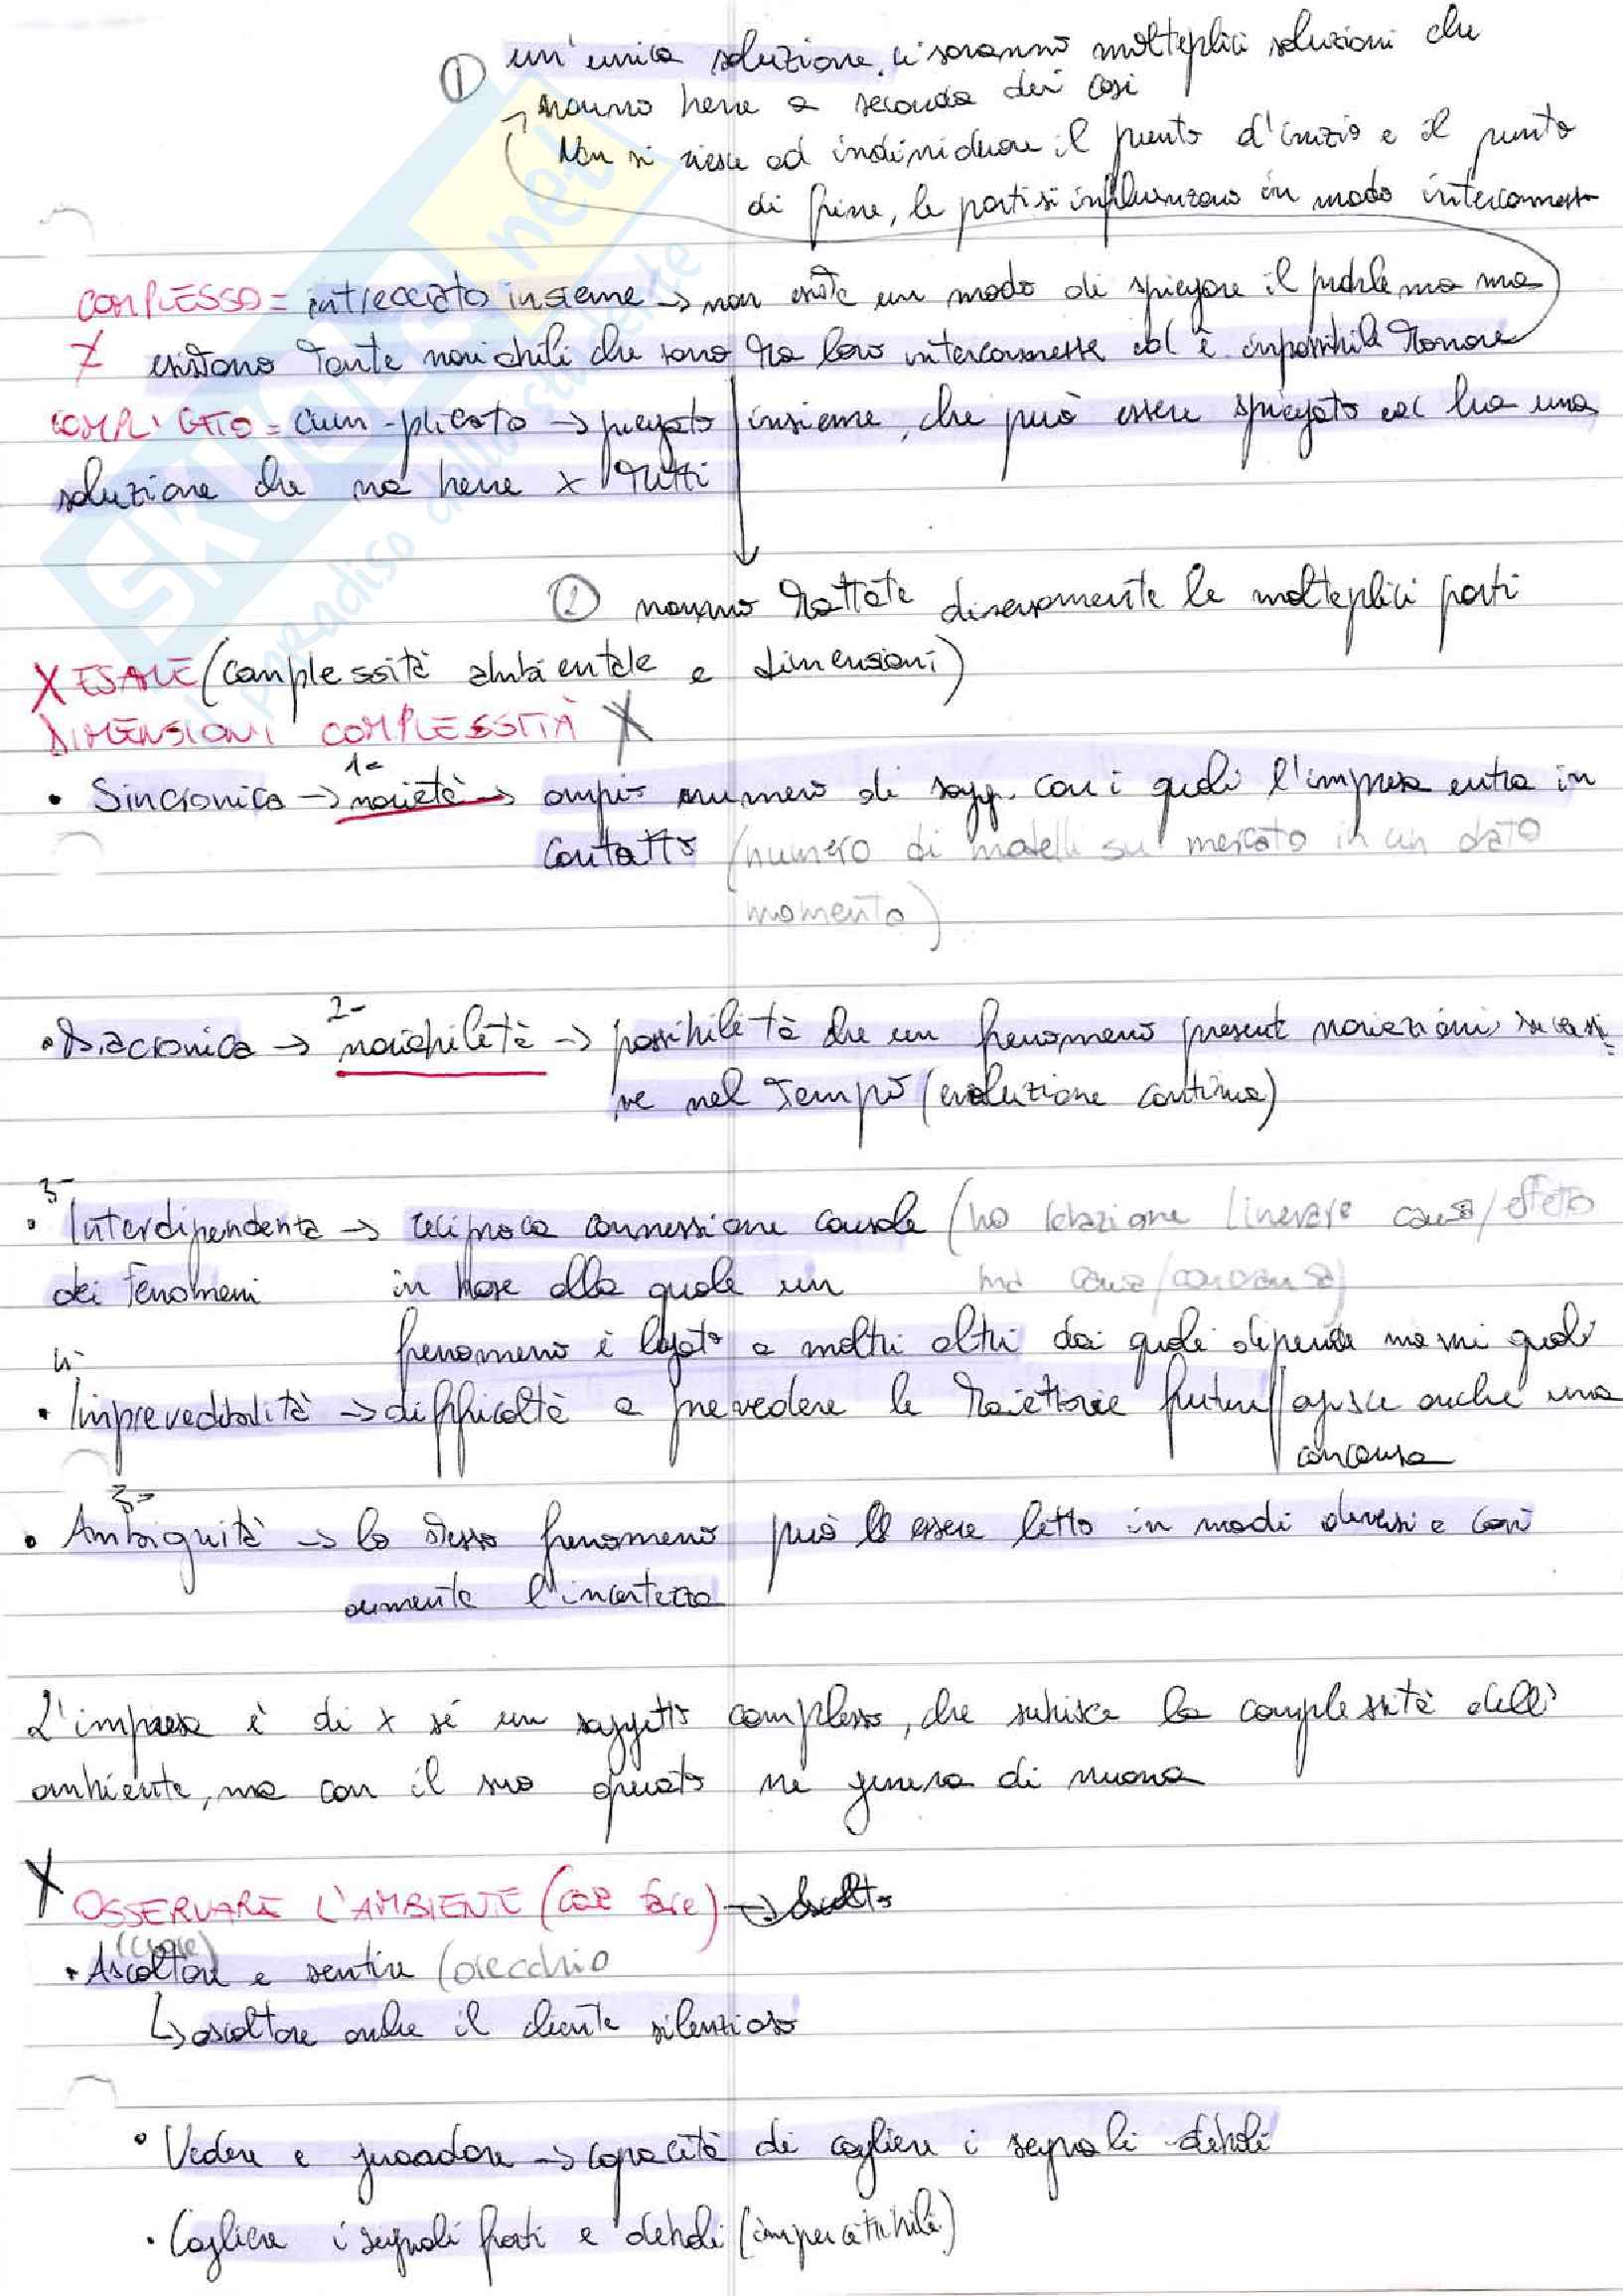 ① un'unica soluzione, ci saranno molteplici soluzioni che
vanno bene a seconda dei casi
→ Non si riesce ad individuare il punto d'inizio e il punto
di fine, le parti si influenzano in modo interconnesso
COMPLESSO = intrecciato insieme → non esiste un modo di spiegare il problema ma
≠ esistono tante variabili che sono tra loro interconnesse ed è impossibile trovare
COMPLICATO = cum-plicato → piegato insieme, che può essere spiegato ed ha una
soluzione che va bene x tutti
② vanno trattate diversamente le molteplici parti
X ESAME (complessità ambientale e dimensioni)
DIMENSIONI COMPLESSITÀ X
• Sincronica → 1- varietà → ampio numero di sogg. con i quali l'impresa entra in
contatto (numero di modelli su mercato in un dato
momento)
• Diacronica → 2- variabilità → possibilità che un fenomeno present variazioni successi-
ve nel tempo (evoluzione continua)
3-
• Interdipendenza → reciproca connessione causale (no relazione lineare causa/effetto
dei fenomeni in base alla quale un ma causa/concausa)
4- fenomeno è legato a molti altri dai quali dipende ma sui quali
• Imprevedibilità → difficoltà a prevedere le traiettorie future // agisce anche una
concausa
5-
• Ambiguità → lo stesso fenomeno può essere letto in modi diversi e così
aumenta l'incertezza
L'impresa è di x sé un soggetto complesso, che subisce la complessità dell'
ambiente, ma con il suo operato ne genera di nuova
X OSSERVARE L'AMBIENTE (cosa fare) →
(cuore)
• Ascoltare e sentire (orecchio
↳ ascoltare anche il cliente silenzioso
• Vedere e guardare → capacità di cogliere i segnali deboli
• Cogliere i segnali forti e deboli (impercettibili)
skuola.net
il paradiso dello studente